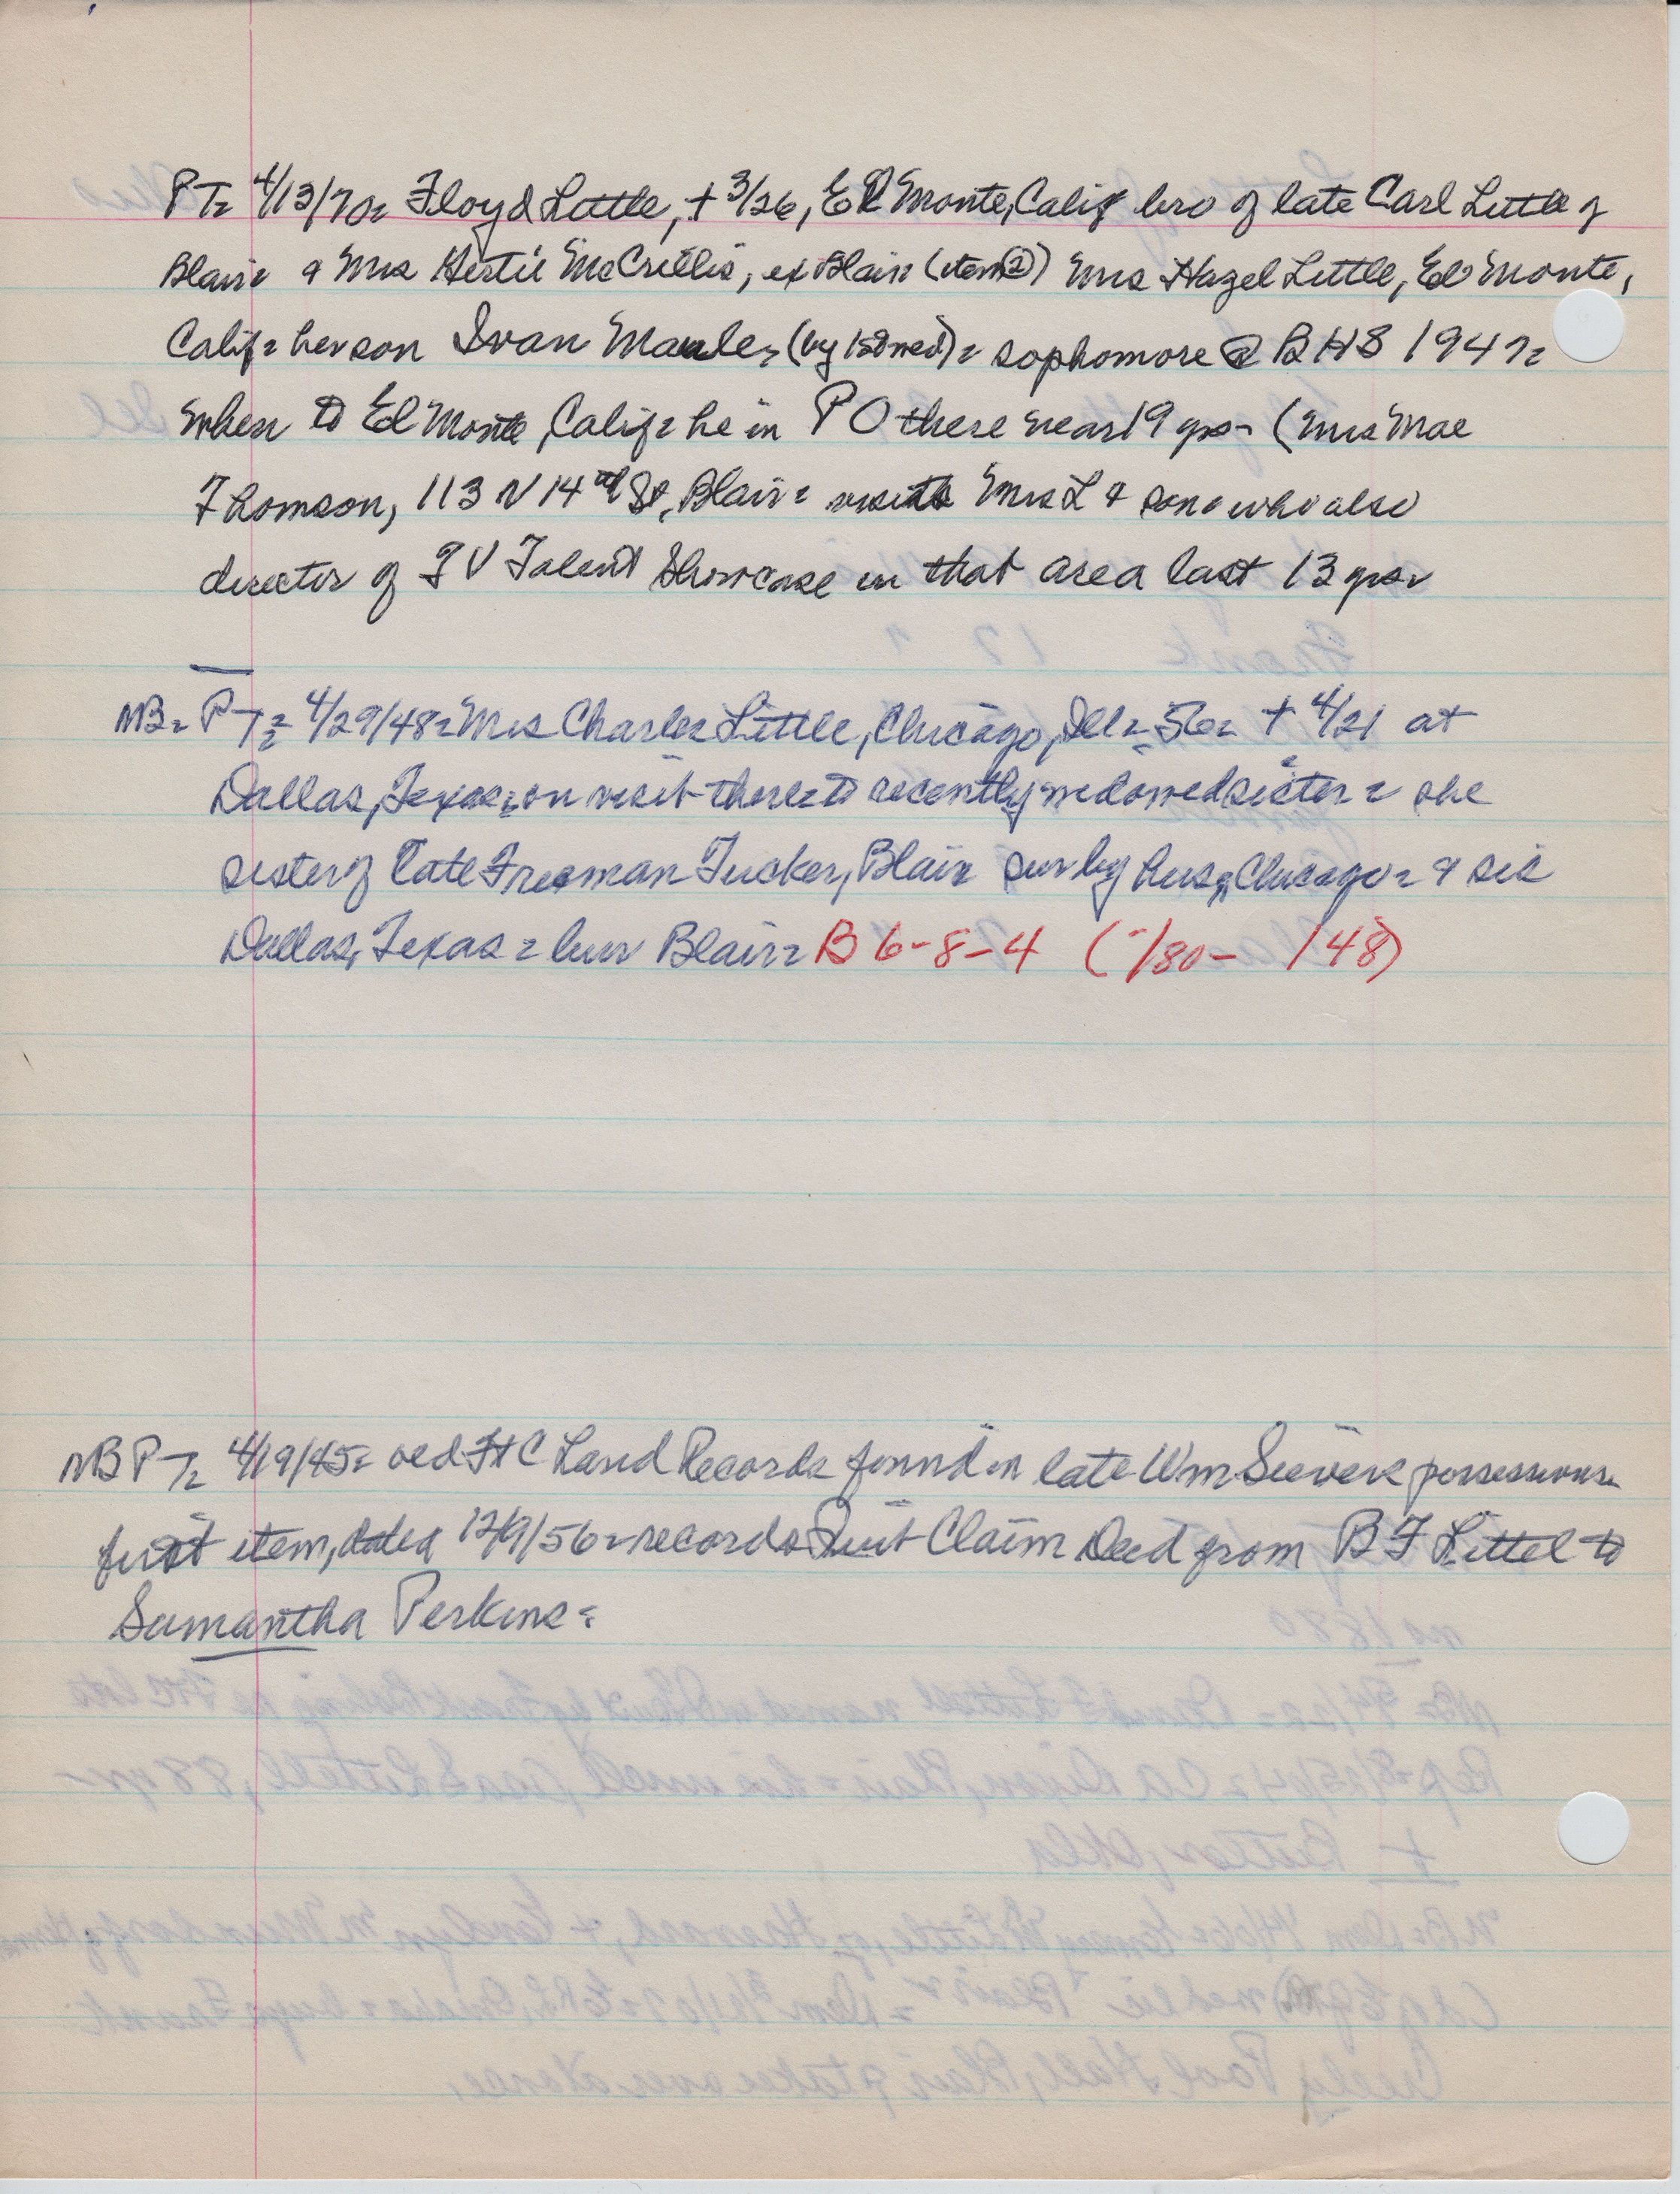 PT= 4/13/70= Floyd Little, + 3/26, El Monte, Calif bro of late Carl Little of
Blair & Mrs Hertie McCrillis, ex Blair (item②) Mrs Hazel Little, El Monte,
Calif= her son Ivan Maule, (by 1st wed)= sophomore @ BHS 1947=
when to El Monte, Calif= he in PO there near 19 yrs- (Mrs Mae
Thomson, 113 N 14th St, Blair= visits Mrs L & son= who also
director of TV Talent Showcase in that area last 13 yrs=
NB= PT= 4/29/48= Mrs Charles Little, Chicago, Ill= 56= + 4/21 at
Dallas, Texas= on visit there to recently widowed sister= she
sister of late Freeman Tucker, Blair sur by hus, Chicago= & sis
Dallas, Texas= bur Blair= B 6-8-4 (-/80- /48)
NB PT= 4/19/45= old Ft C Land Records found in late Wm Sievers possessions=
first item, dated 12/9/56= records Quit Claim Deed from B F Littel to
Samantha Perkins=